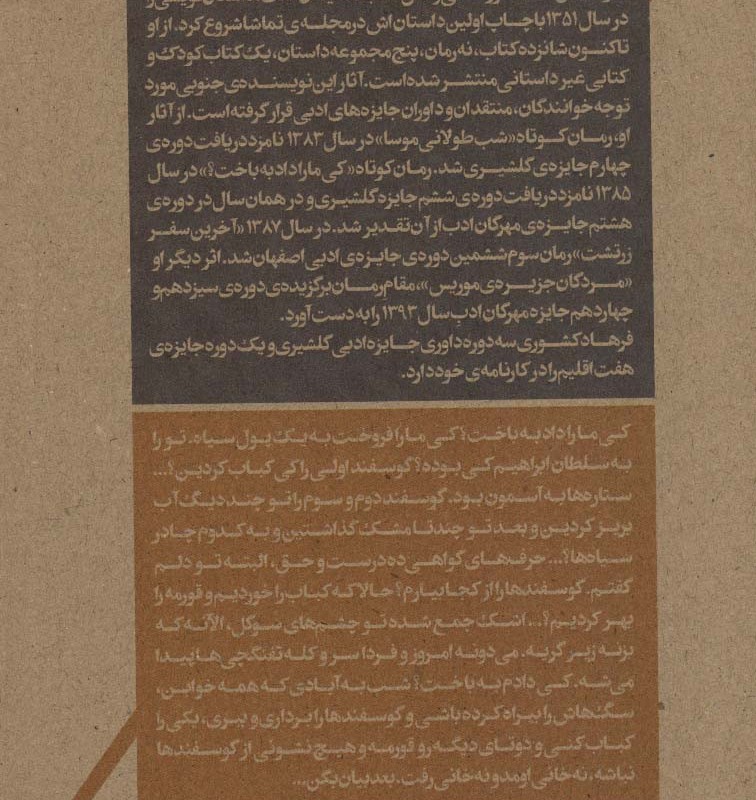 در سال ۱۳۵۱ با چاپ اولین داستان اش در مجله ی تماشا شروع کرد. از او
تاکنون شانزده کتاب، نه رمان، پنج مجموعه داستان، یک کتاب کودک و
کتابی غیر داستانی منتشر شده است. آثار این نویسنده ی جنوبی مورد
توجه خوانندگان، منتقدان و داوران جایزه های ادبی قرار گرفته است. از آثار
او، رمان کوتاه «شب طولانی موسا» در سال ۱۳۸۳ نامزد دریافت دوره ی
چهارم جایزه ی گلشیری شد. رمان کوتاه «کی ما را داد به باخت؟» در سال
۱۳۸۵ نامزد دریافت دوره ی ششم جایزه گلشیری و در همان سال در دوره ی
هشتم جایزه ی مهرگان ادب از آن تقدیر شد. در سال ۱۳۸۷ «آخرین سفر
زرتشت» رمان سوم ششمین دوره ی جایزه ی ادبی اصفهان شد. اثر دیگر او
«مردگان جزیره ی موریس»، مقام رمان برگزیده ی دوره ی سیزدهم و
چهاردهم جایزه مهرگان ادب سال ۱۳۹۳ را به دست آورد.
فرهاد کشوری سه دوره داوری جایزه ادبی گلشیری و یک دوره جایزه ی
هفت اقلیم را در کارنامه ی خود دارد.
کی ما را داد به باخت؟ کی ما را فروخت به یک پول سیاه. تو را
به سلطان ابراهیم کی بوده؟ گوسفند اولی را کی کباب کردین؟...
ستاره ها به آسمون بود. گوسفند دوم و سوم را تو چند دیگ آب
بریز کردین و بعد تو چند تا مشک گذاشتین و به کدوم چادر
سیاه ها؟... حرف های گواهی ده درست و حق، البته تو دلم
گفتم. گوسفندها را از کجا بیارم؟ حالا که کباب را خوردیم و قورمه را
بهر کردیم؟... اشک جمع شده تو چشم های سوگل، الآنه که
بزنه زیر گریه. می دونه امروز و فردا سر و کله تفنگچی ها پیدا
می شه. کی دادم به باخت؟ شب به آبادی که همه خوابن،
سگ هاش را بیراه کرده باشی و گوسفندها را برداری و ببری، یکی را
کباب کنی و دوتای دیگه رو قورمه و هیچ نشونی از گوسفندها
نباشه، نه خانی اومد و نه خانی رفت. بعد بیان بگن...